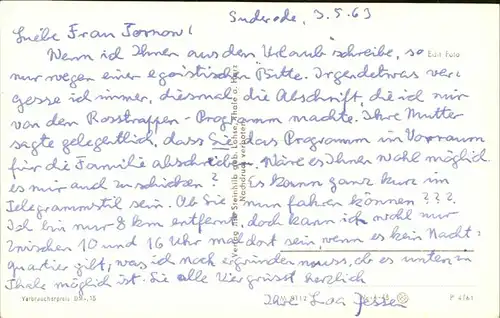 Suderode, 3.5.63
Liebe Frau Tornow!
Wenn ich Ihnen aus dem Urlaub schreibe, so
nur wegen einer egoistischen Bitte. Irgendetwas ver-
gesse ich immer, diesmal die Abschrift, die ich mir
von dem Rosstrappen-Programm machte. Ihre Mutter
sagte gelegentlich, dass Sie das Programm im Vorraum
für die Familie abschreiben. Wäre es Ihnen wohl möglich
es mir auch zu schicken? Es kann ganz kurz im
Telegrammstil sein. Ob Sie nun fahren können???
Ich bin nur 8 km entfernt, doch kann ich wohl nur
zwischen 10 und 16 Uhr mal dort sein, wenn es kein Nacht-
quartier gibt, was ich noch ergründen muss, ob es unten in
Thale möglich ist. Sie alle Vier grüsst herzlich
Ihre Jessen
Edit Foto
Verlag Steinbiß, geb. Lohse, Thale a. Harz
Nachdruck verboten
Verbraucherpreis DM -,15
P 4/61